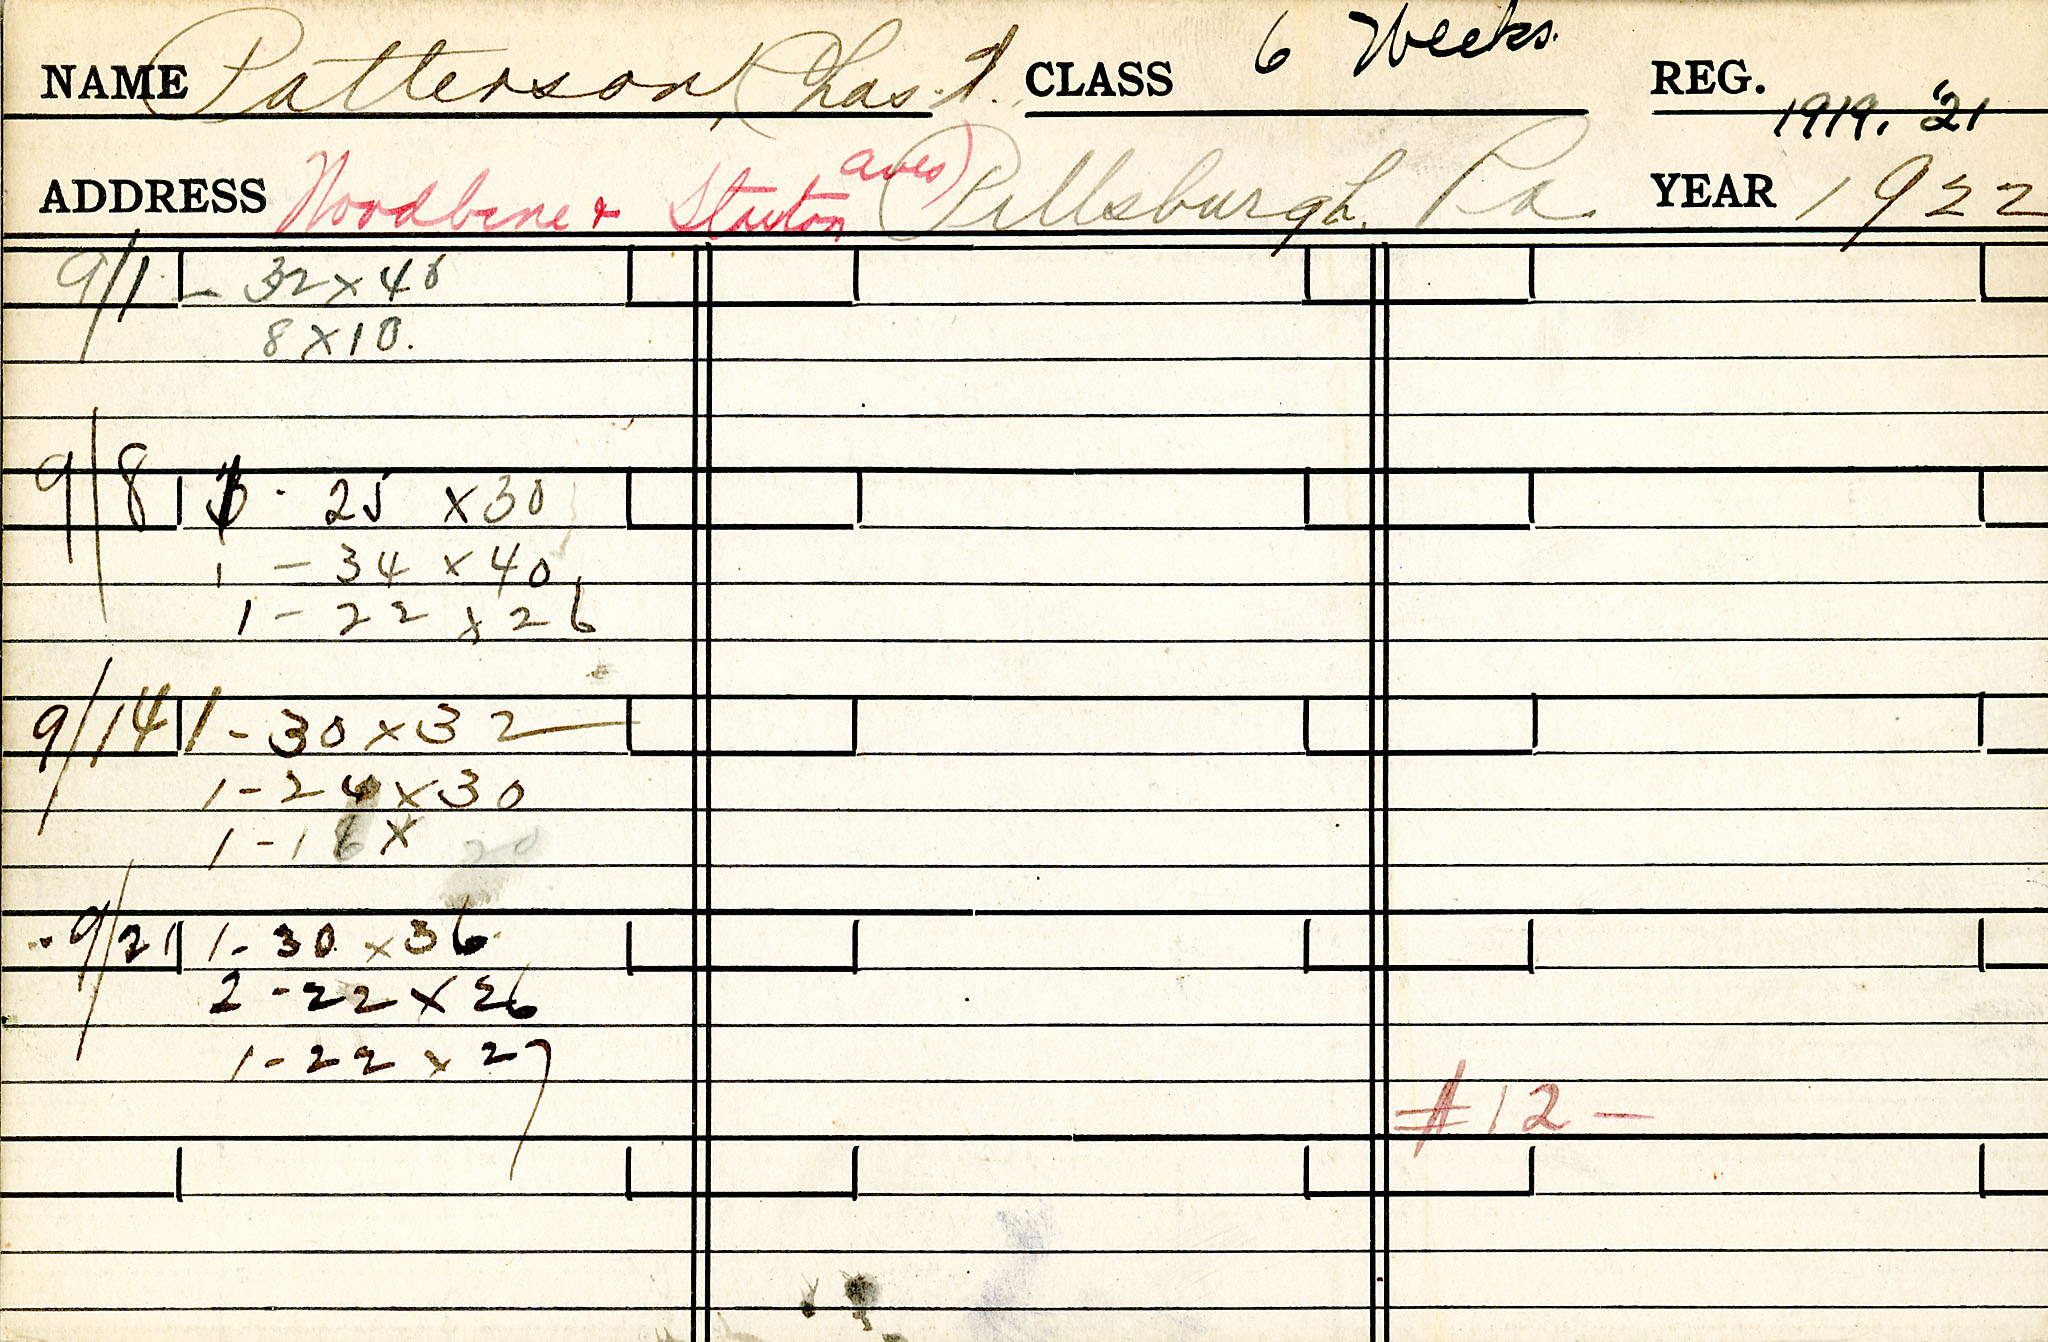 NAME Patterson, Chas. J. CLASS 6 Weeks. REG. 1919. '21
ADDRESS Woodbine & Stanton aves) Pittsburgh. Pa. YEAR 1922
9/1 - 32 x 40
8 x 10.
9/8 - 25 x 30
1 - 34 x 40
1 - 22 x 26
9/14 1 - 30 x 32
1 - 24 x 30
1 - 16 x 20
9/21 1 - 30 x 36
2 - 22 x 26
1 - 22 x 27
#12 -